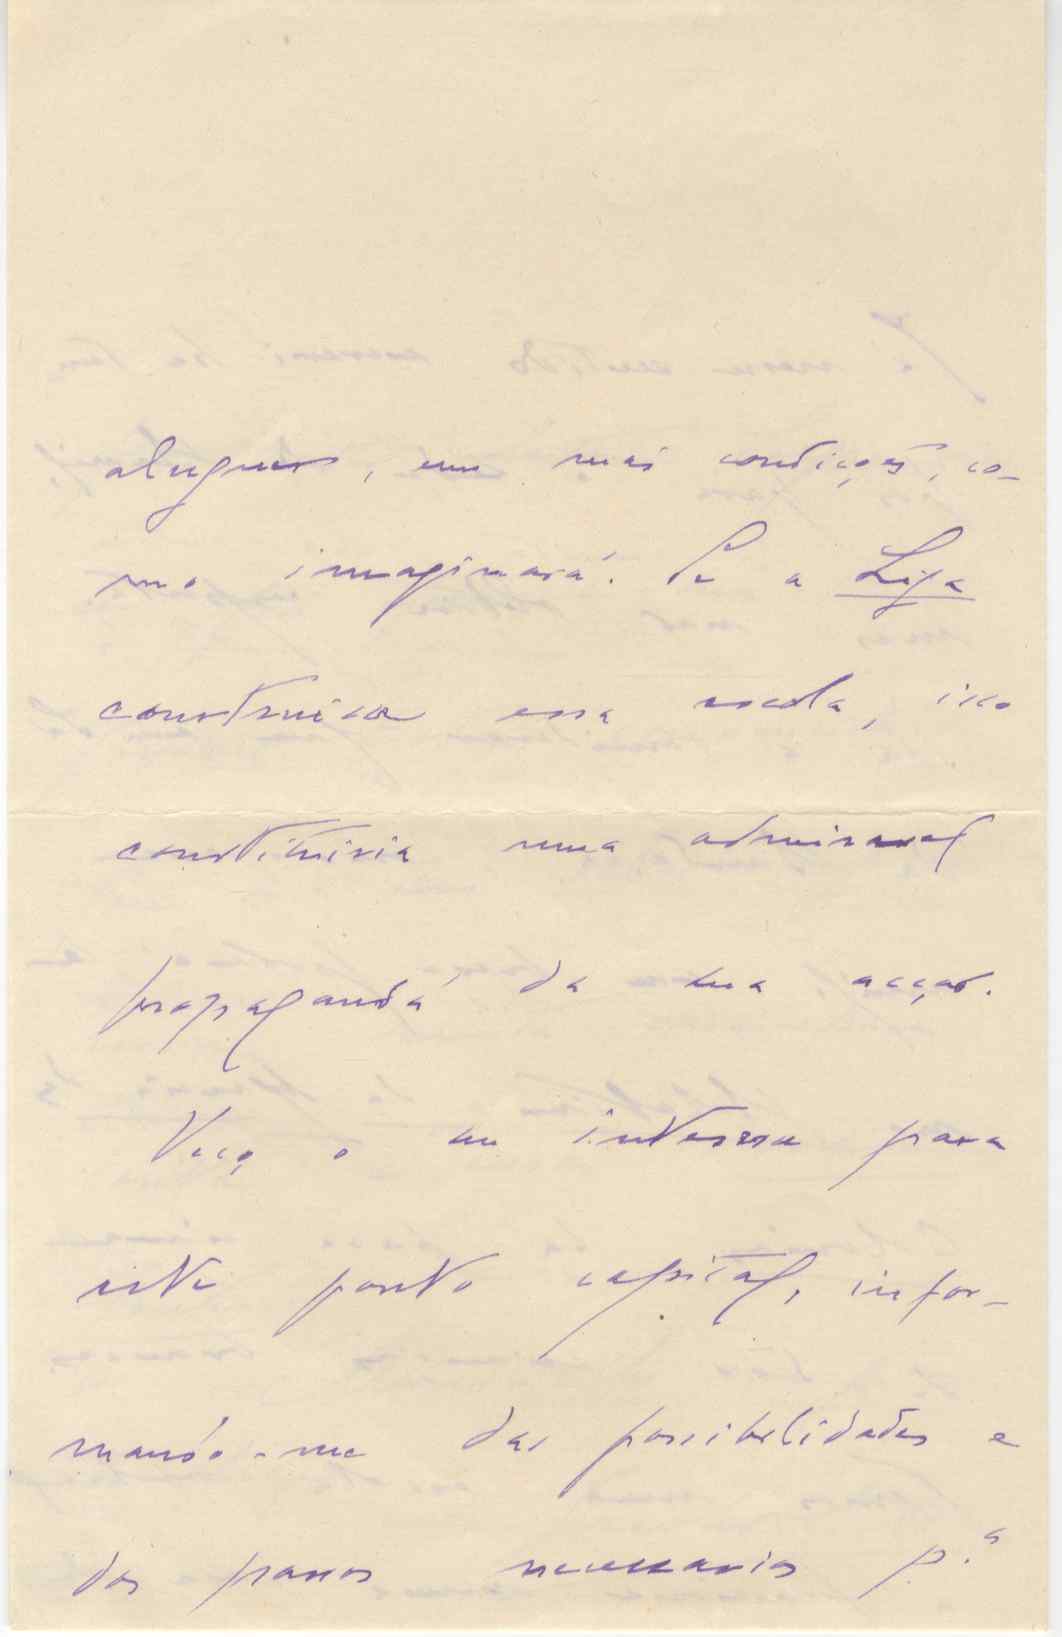 aluguer, em más condições, co-
mo imaginará. Se a Liga
construisse essa escola, isso
constituiria uma admiravel
propaganda da sua acção.
Peço o seu interesse para
este ponto capital, infor-
mando-me das possibilidades e
dos passos necessarios p.ª